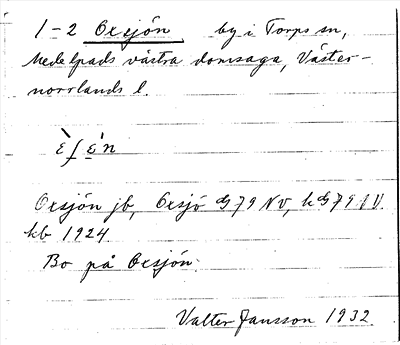 1-2 Oxsjön by i Torps sn,
Medelpads västra domsaga, Väster-
norrlands l.
Oxsjön jb, Oxsjö G 79 NV, k G 79 NV
kb 1924
Bo på Oxsjön
Valter Jansson 1932